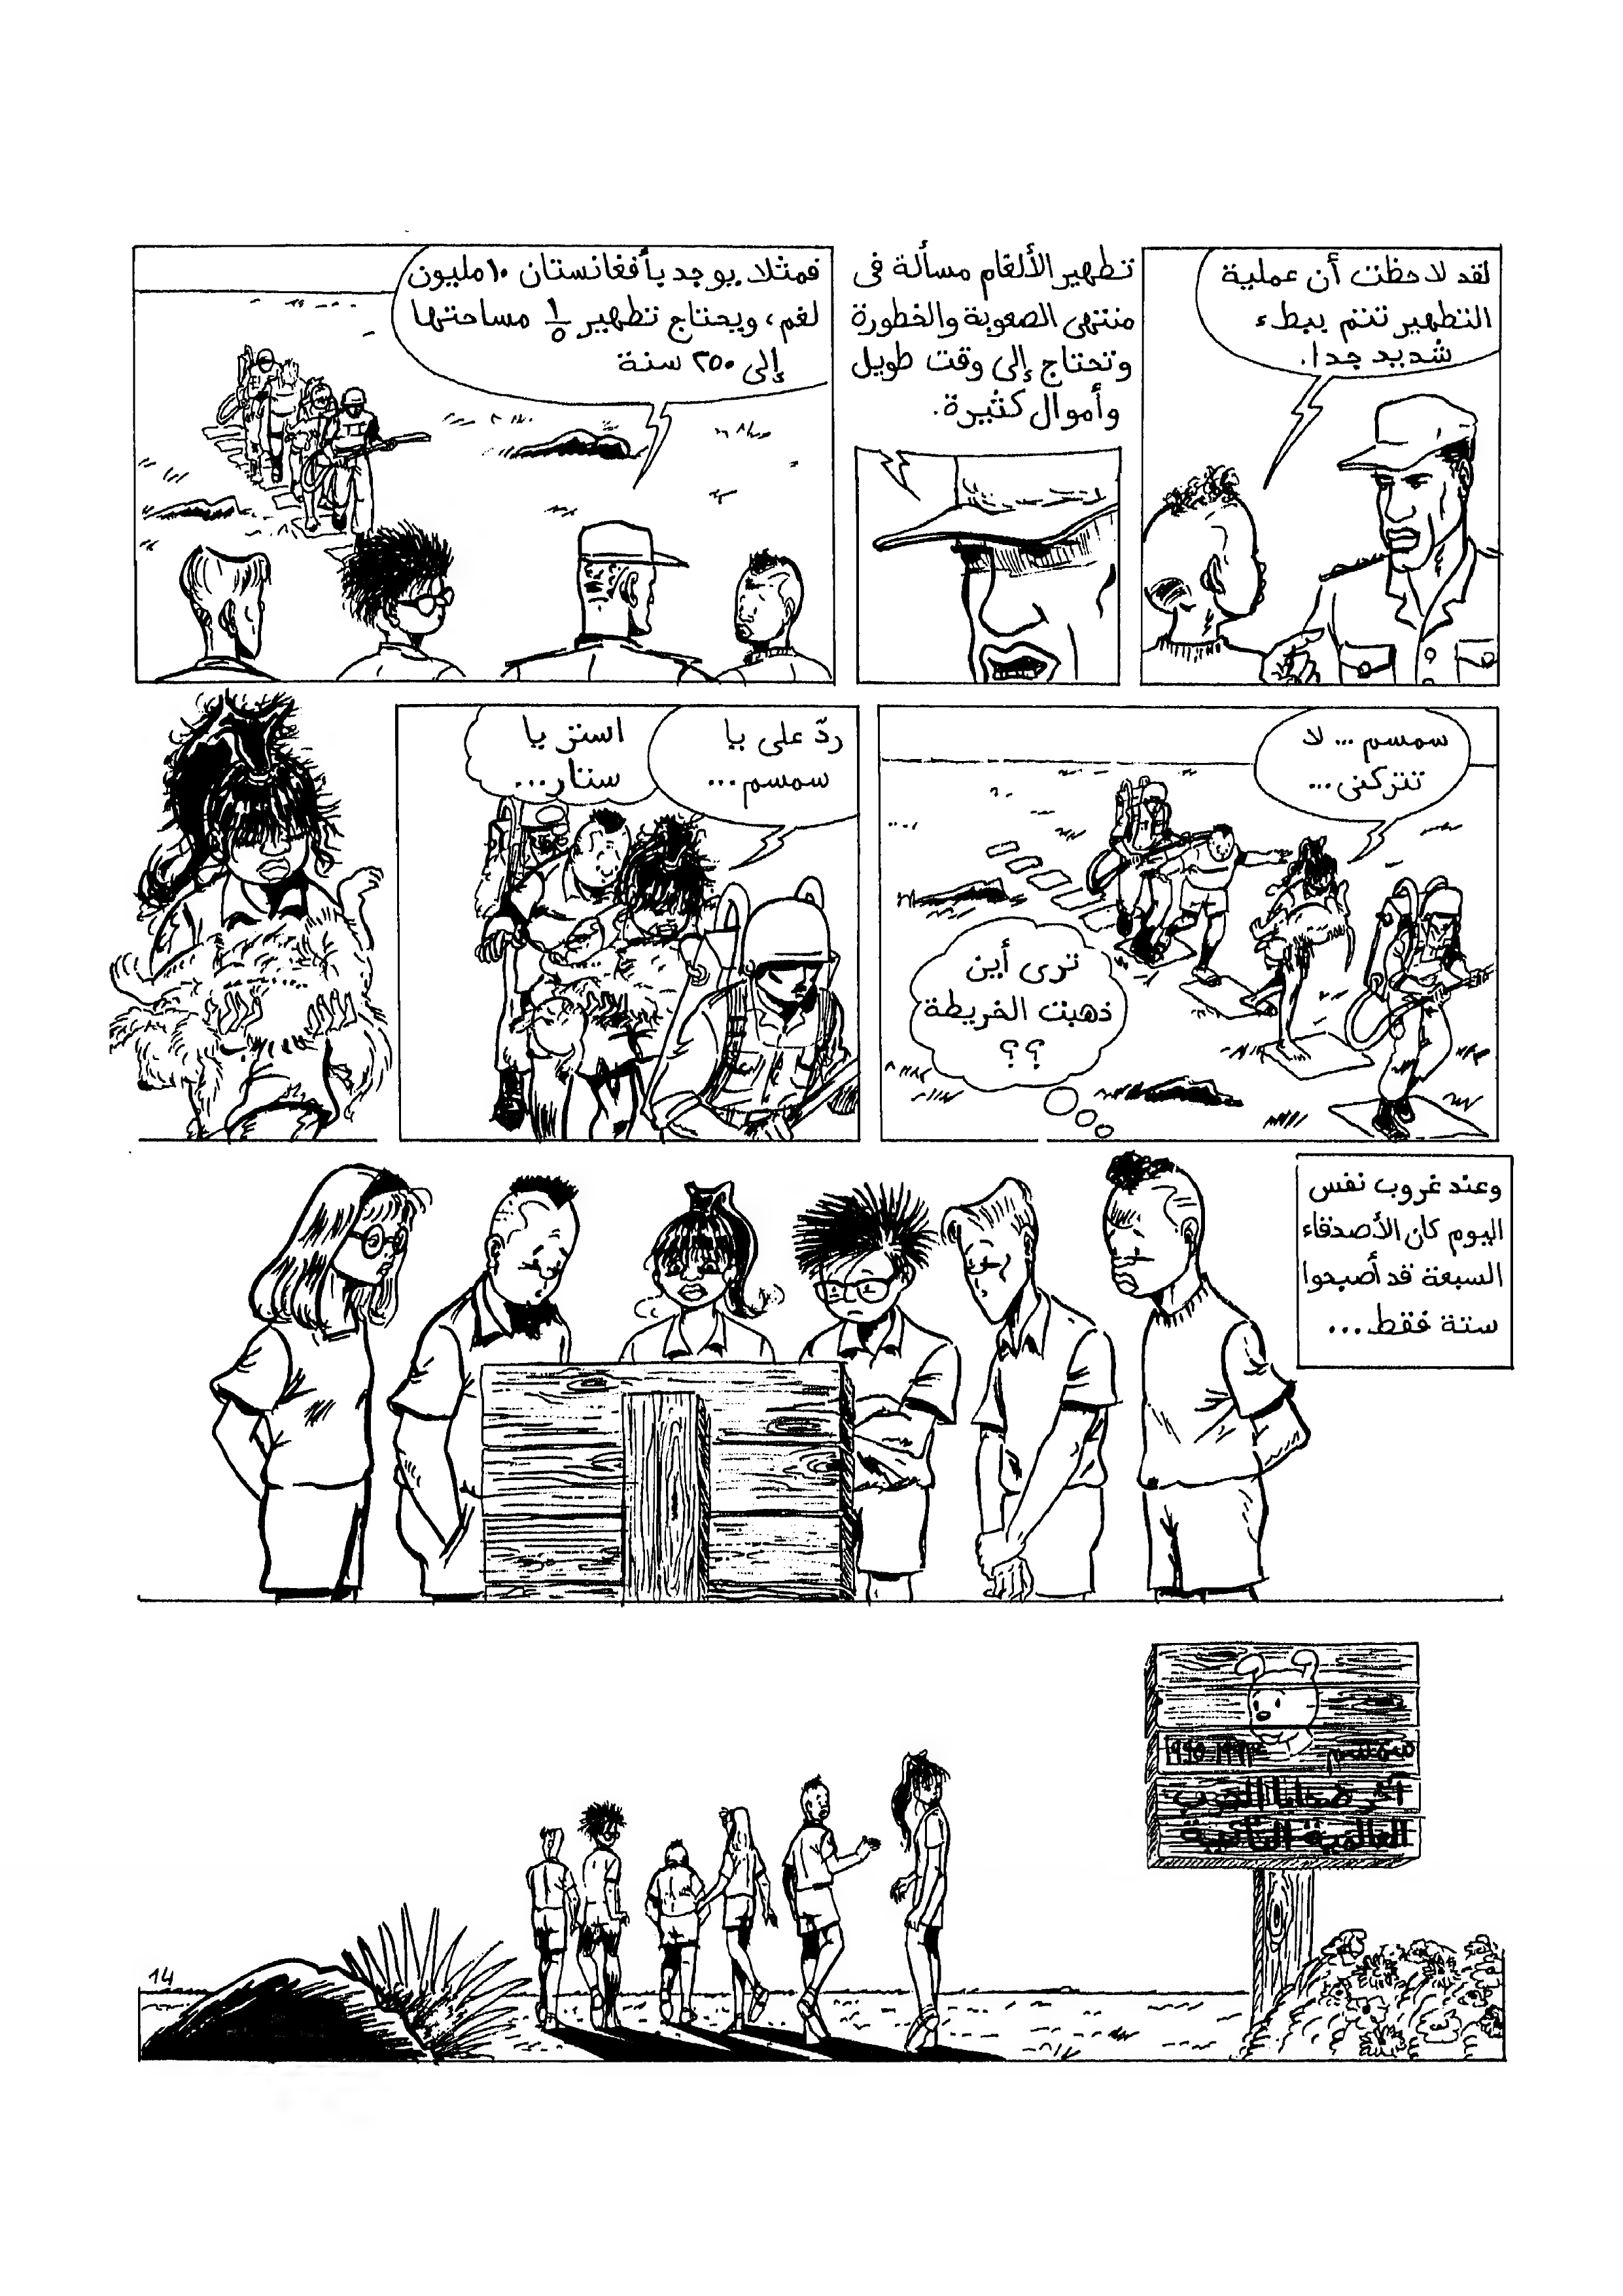 لقد لاحظت أن عملية
التطهير تتم ببطء
شديد جدا.
تطهير الألغام مسألة فى
منتهى الصعوبة والخطورة
وتحتاج إلى وقت طويل
وأموال كثيرة.
فمثلا يوجد بأفغانستان ١٠ مليون
لغم، ويحتاج تطهير ١/٥ مساحتها
إلى ٢٥٠ سنة
سمسم ... لا
تتركنى ...
ترى أين
ذهبت الخريطة
؟؟
ردّ على يا
سمسم ...
استر يا
ستار ...
وعند غروب نفس
اليوم كان الأصدقاء
السبعة قد أصبحوا
ستة فقط ...
سمسم
آخر ضحايا الحرب
العالمية الثانية
14